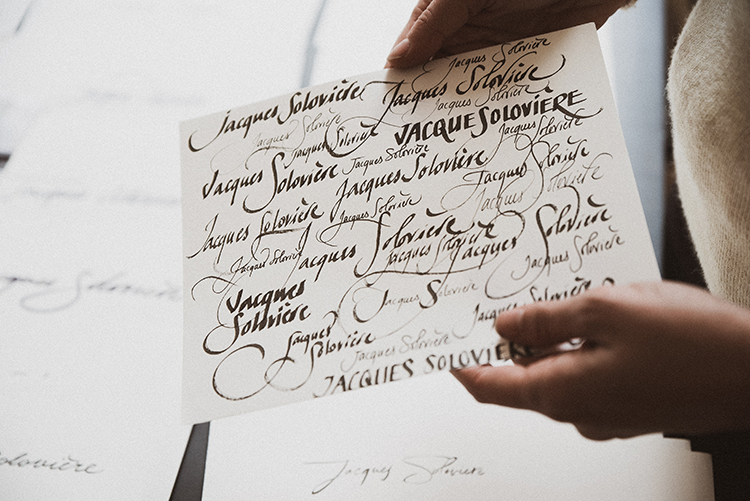 Jacques Solovière
Jacques Solovière
Jacques Solovière
Jacques Solovière
Jacques Solovière
JACQUESOLOVIÈRE
Jacques Solovière
Jacques Solovière
Jacques Solovière
Jacques Solovière
Jacques Solovière
Jacques Solovière
Jacques Solovière
Jacques Solovière
Jacques Solovière
Jacques Solovière
Jacques Solovière
Jacques Solovière
Jacques Solovière
Jacques Solovière
Jacques Solovière
Jacques Solovière
Jacques
Solovière
Jacques Solovière
Jacques Solovière
Jacques
Solovière
Jacques Solovière
JACQUES SOLOVIÈRE
Jacques Solovière
olovière
Jacques Soloviere